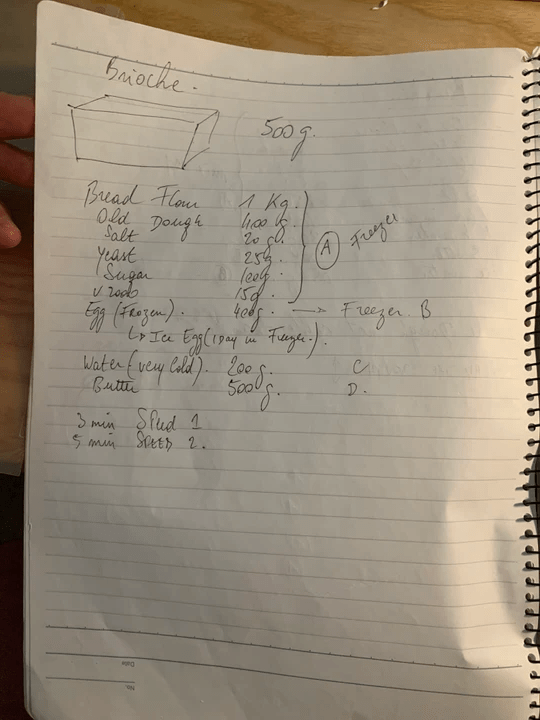 Brioche.
500g.
Bread Flour 1 Kg.
Old Dough 400g. A Freezer
Salt 20g.
Yeast 25g.
Sugar 100g.
15g.
Egg (Frozen). 400g. → Freezer B
↳ Ice Egg (1 Day in Freezer.).
Water (very Cold). 200g. C
Butter 500g. D.
3 min Speed 1
5 min SPEED 2.
Date
No.